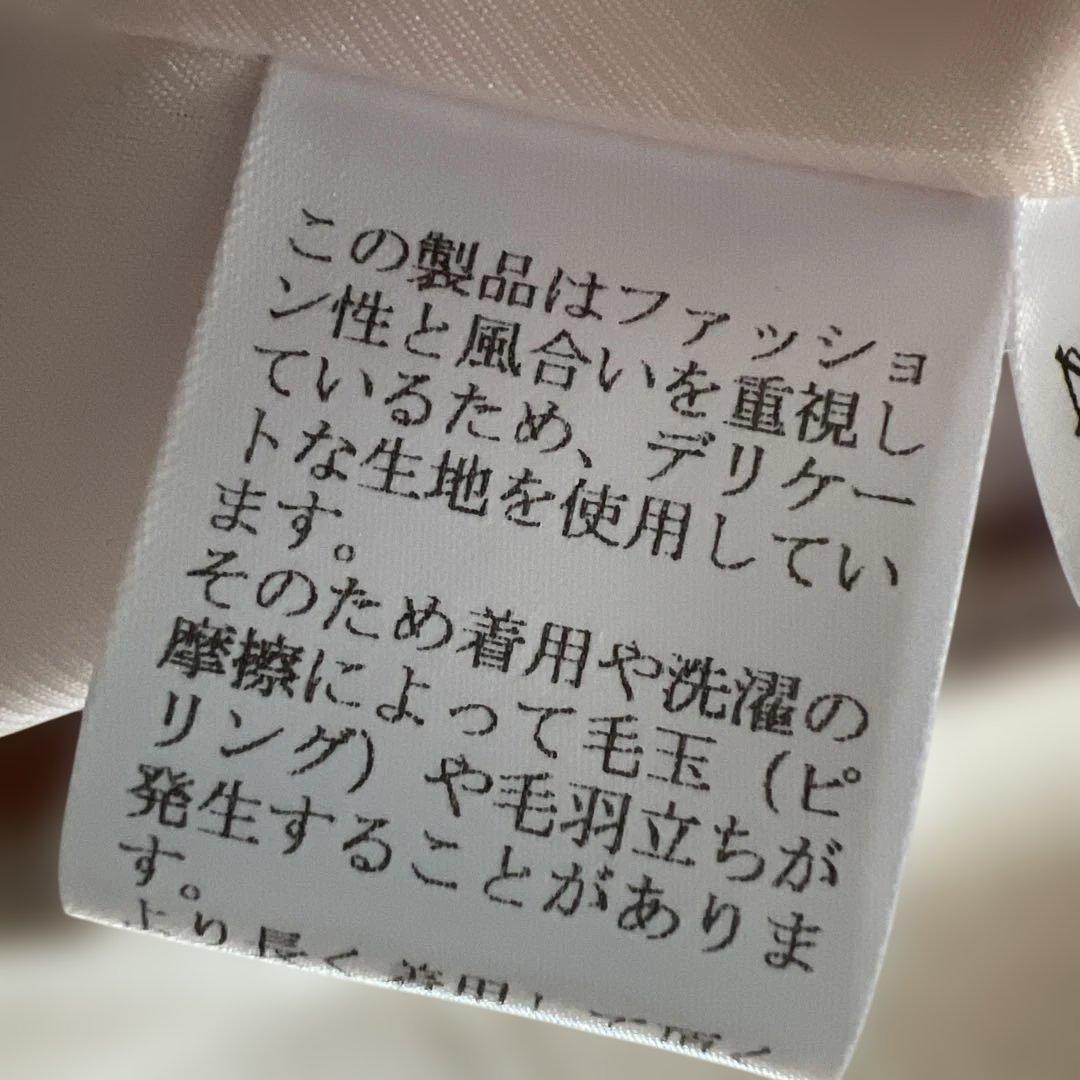 この製品はファッショ
ン性と風合いを重視し
ているため、デリケー
トな生地を使用してい
ます。
そのため着用や洗濯の
摩擦によって毛玉（ピ
リング）や毛羽立ちが
発生することがありま
す。
より長く着用して